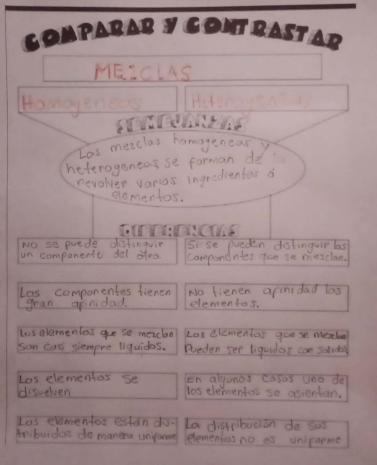 COMPARAR Y CONTRASTAR
MEZCLAS
Homogeneas
Heterogeneas
SEMEJANZAS
Las mezclas homogeneas y
heterogeneas se forman de
revolver varios ingredientes ó
elementos.
DIFERENCIAS
No se puede distinguir
un componente del otro.
Si se pueden distinguir los
componentes que se mezclan.
Los componentes tienen
gran afinidad.
No tienen afinidad los
elementos.
Los elementos que se mezclan
son casi siempre liquidos.
Los elementos que se mezclan
Pueden ser liquidos con solidos
Los elementos se
disuelven
En algunos casos uno de
los elementos se asientan.
Los elementos están dis-
tribuidos de manera uniforme
La distribución de sus
elementos no es uniforme